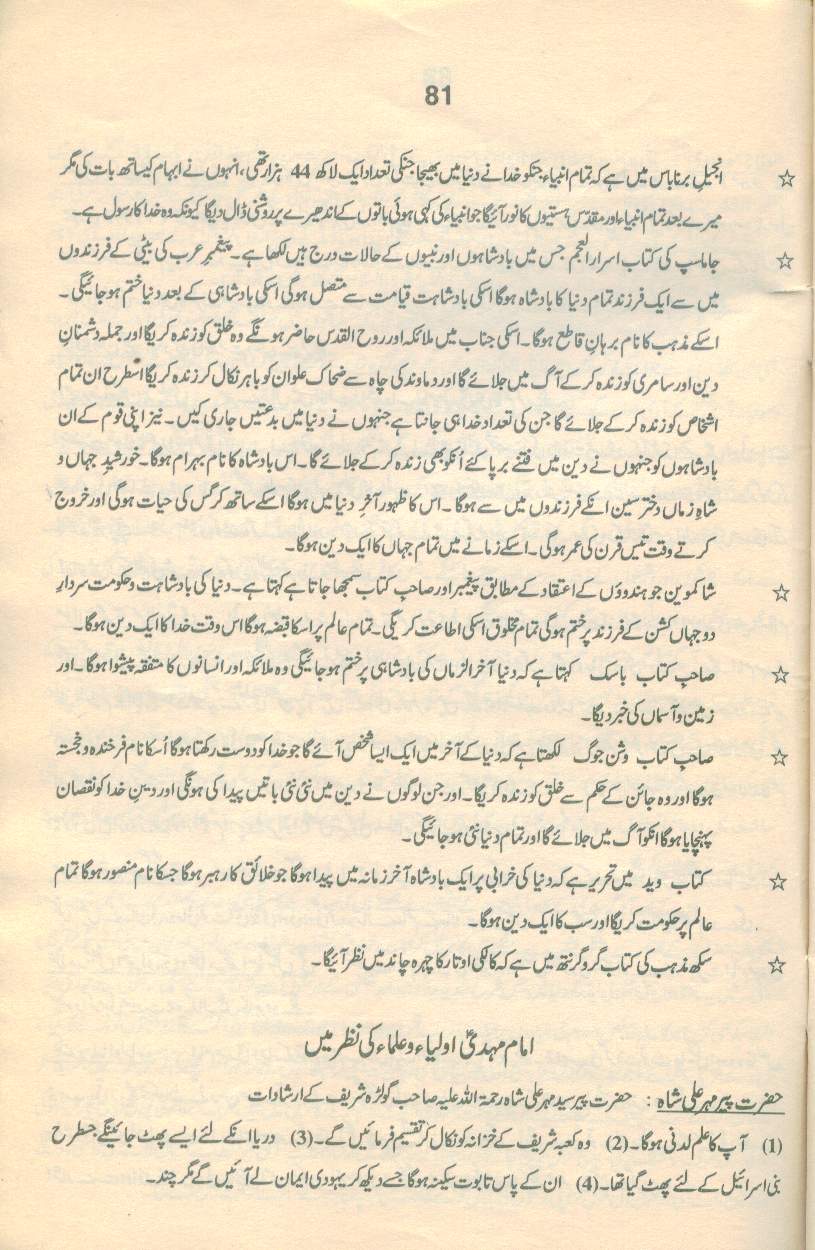 81
☆ انجیلِ برناباس میں ہے کہ تمام انبیاء جنکو خدا نے دنیا میں بھیجا جنکی تعداد ایک لاکھ 44 ہزار تھی، انہوں نے ابہام کیساتھ بات کی مگر
میرے بعد تمام انبیاء اور مقدّس ہستیوں کا نور آئیگا جو انبیاء کی کہی ہوئی باتوں کے اندھیرے پر روشنی ڈال دیگا کیونکہ وہ خدا کا رسول ہے۔
☆ جاماسپ کی کتاب اسرار العجم جس میں بادشاہوں اور نبیوں کے حالات درج ہیں لکھا ہے۔ پیغمبرِ عرب کی بیٹی کے فرزندوں
میں سے ایک فرزند تمام دنیا کا بادشاہ ہوگا اسکی بادشاہت قیامت سے متصل ہوگی اسکی بادشاہی کے بعد دنیا ختم ہو جائیگی۔
اسکے مذہب کا نام برہانِ قاطع ہوگا۔ اسکی جناب میں ملائکہ اور روح القدس حاضر ہونگے وہ خلق کو زندہ کریگا اور جملہ دشمنانِ
دین اور سامری کو زندہ کر کے آگ میں جلائے گا اور دماوند کی چاہ سے ضحاک علوان کو باہر نکال کر زندہ کریگا اسطرح ان تمام
اشخاص کو زندہ کر کے جلائے گا جن کی تعداد خدا ہی جانتا ہے جنہوں نے دنیا میں بدعتیں جاری کیں۔ نیز اپنی قوم کے ان
بادشاہوں کو جنہوں نے دین میں فتنے برپا کئے اُنکو بھی زندہ کر کے جلائے گا۔ اس بادشاہ کا نام بہرام ہوگا۔ خورشیدِ جہاں و
شاہِ زماں دختر سین انکے فرزندوں میں سے ہوگا۔ اس کا ظہور آخرِ دنیا میں ہوگا اسکے ساتھ کرگس کی حیات ہوگی اور خروج
کرتے وقت تیس قرن کی عمر ہوگی۔ اسکے زمانے میں تمام جہاں کا ایک دین ہوگا۔
☆ شاکمونین جو ہندوؤں کے اعتقاد کے مطابق پیغمبر اور صاحبِ کتاب سمجھا جاتا ہے کہتا ہے۔ دنیا کی بادشاہت و حکومت سردارِ
دو جہاں کشن کے فرزند پر ختم ہوگی تمام مخلوق اسکی اطاعت کریگی۔ تمام عالم پر اسکا قبضہ ہوگا اس وقت خدا کا ایک دین ہوگا۔
☆ صاحبِ کتاب باسک کہتا ہے کہ دنیا آخر الزماں کی بادشاہی پر ختم ہو جائیگی وہ ملائکہ اور انسانوں کا متفقہ پیشوا ہوگا۔ اور
زمین و آسماں کی خبر دیگا۔
☆ صاحبِ کتاب وشن جوگ لکھتا ہے کہ دنیا کے آخر میں ایک ایسا شخص آئے گا جو خدا کو دوست رکھتا ہوگا اُسکا نام فرخندہ و خجستہ
ہوگا اور وہ جائن کے حکم سے خلق کو زندہ کریگا۔ اور جن لوگوں نے دین میں نئی نئی باتیں پیدا کی ہونگی اور دینِ خدا کو نقصان
پہنچایا ہوگا انکو آگ میں جلائے گا اور تمام دنیا نئی ہو جائیگی۔
☆ کتاب وید میں تحریر ہے کہ دنیا کی خرابی پر ایک بادشاہ آخر زمانہ میں پیدا ہوگا جو خلائق کا رہبر ہوگا جسکا نام منصور ہوگا تمام
عالم پر حکومت کریگا اور سب کا ایک دین ہوگا۔
☆ سکھ مذہب کی کتاب گرو گرنتھ میں ہے کہ کالکی اوتار کا چہرہ چاند میں نظر آئیگا۔
امام مہدیؑ اولیاء و علماء کی نظر میں
حضرت پیر مہر علی شاہ : حضرت پیر سید مہر علی شاہ رحمۃ اللہ علیہ صاحب گولڑہ شریف کے ارشادات
(1) آپ کا علم لدنی ہوگا۔ (2) وہ کعبہ شریف کے خزانہ کو نکال کر تقسیم فرمائیں گے۔ (3) دریا انکے لئے ایسے پھٹ جائینگے جسطرح
بنی اسرائیل کے لئے پھٹ گیا تھا۔ (4) ان کے پاس تابوت سکینہ ہوگا جسے دیکھ کر یہودی ایمان لے آئیں گے مگر چند۔